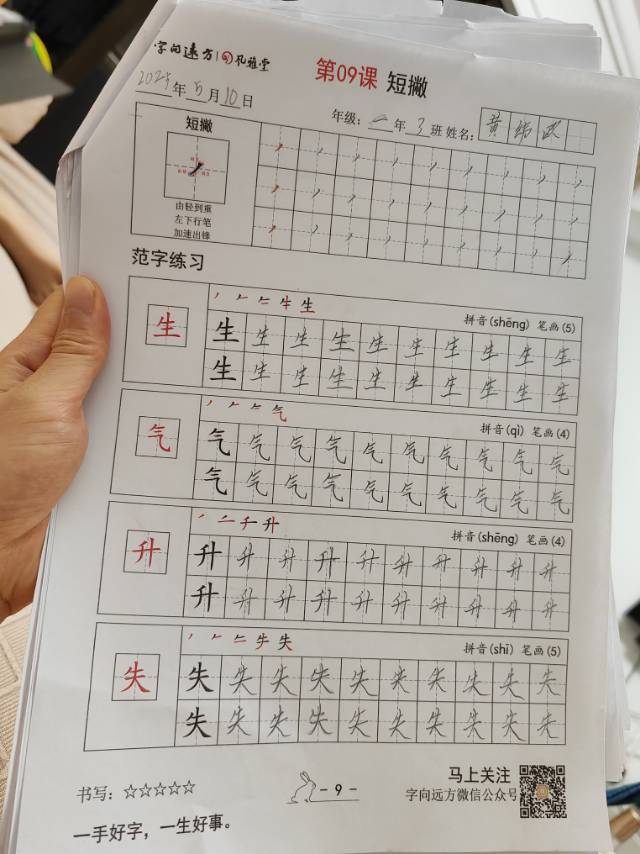 字向远方 孔雅堂
第09课 短撇
2025年5月10日
年级：二年3班 姓名：黄
短撇
由轻到重
左下行笔
加速出锋
范字练习
拼音(shēng) 笔画(5)
生 生 生 生 生 生 生 生 生 生 生
生 生 生 生 生 生 生 生 生 生
拼音(qì) 笔画(4)
气 气 气 气 气 气 气 气 气 气 气
气 气 气 气 气 气 气 气 气 气
拼音(shēng) 笔画(4)
升 升 升 升 升 升 升 升 升 升 升
升 升 升 升 升 升 升 升 升 升
拼音(shī) 笔画(5)
失 失 失 失 失 失 失 失 失 失 失
失 失 失 失 失 失 失 失 失 失
书写：☆☆☆☆☆
- 9 -
马上关注
字向远方微信公众号
一手好字，一生好事。